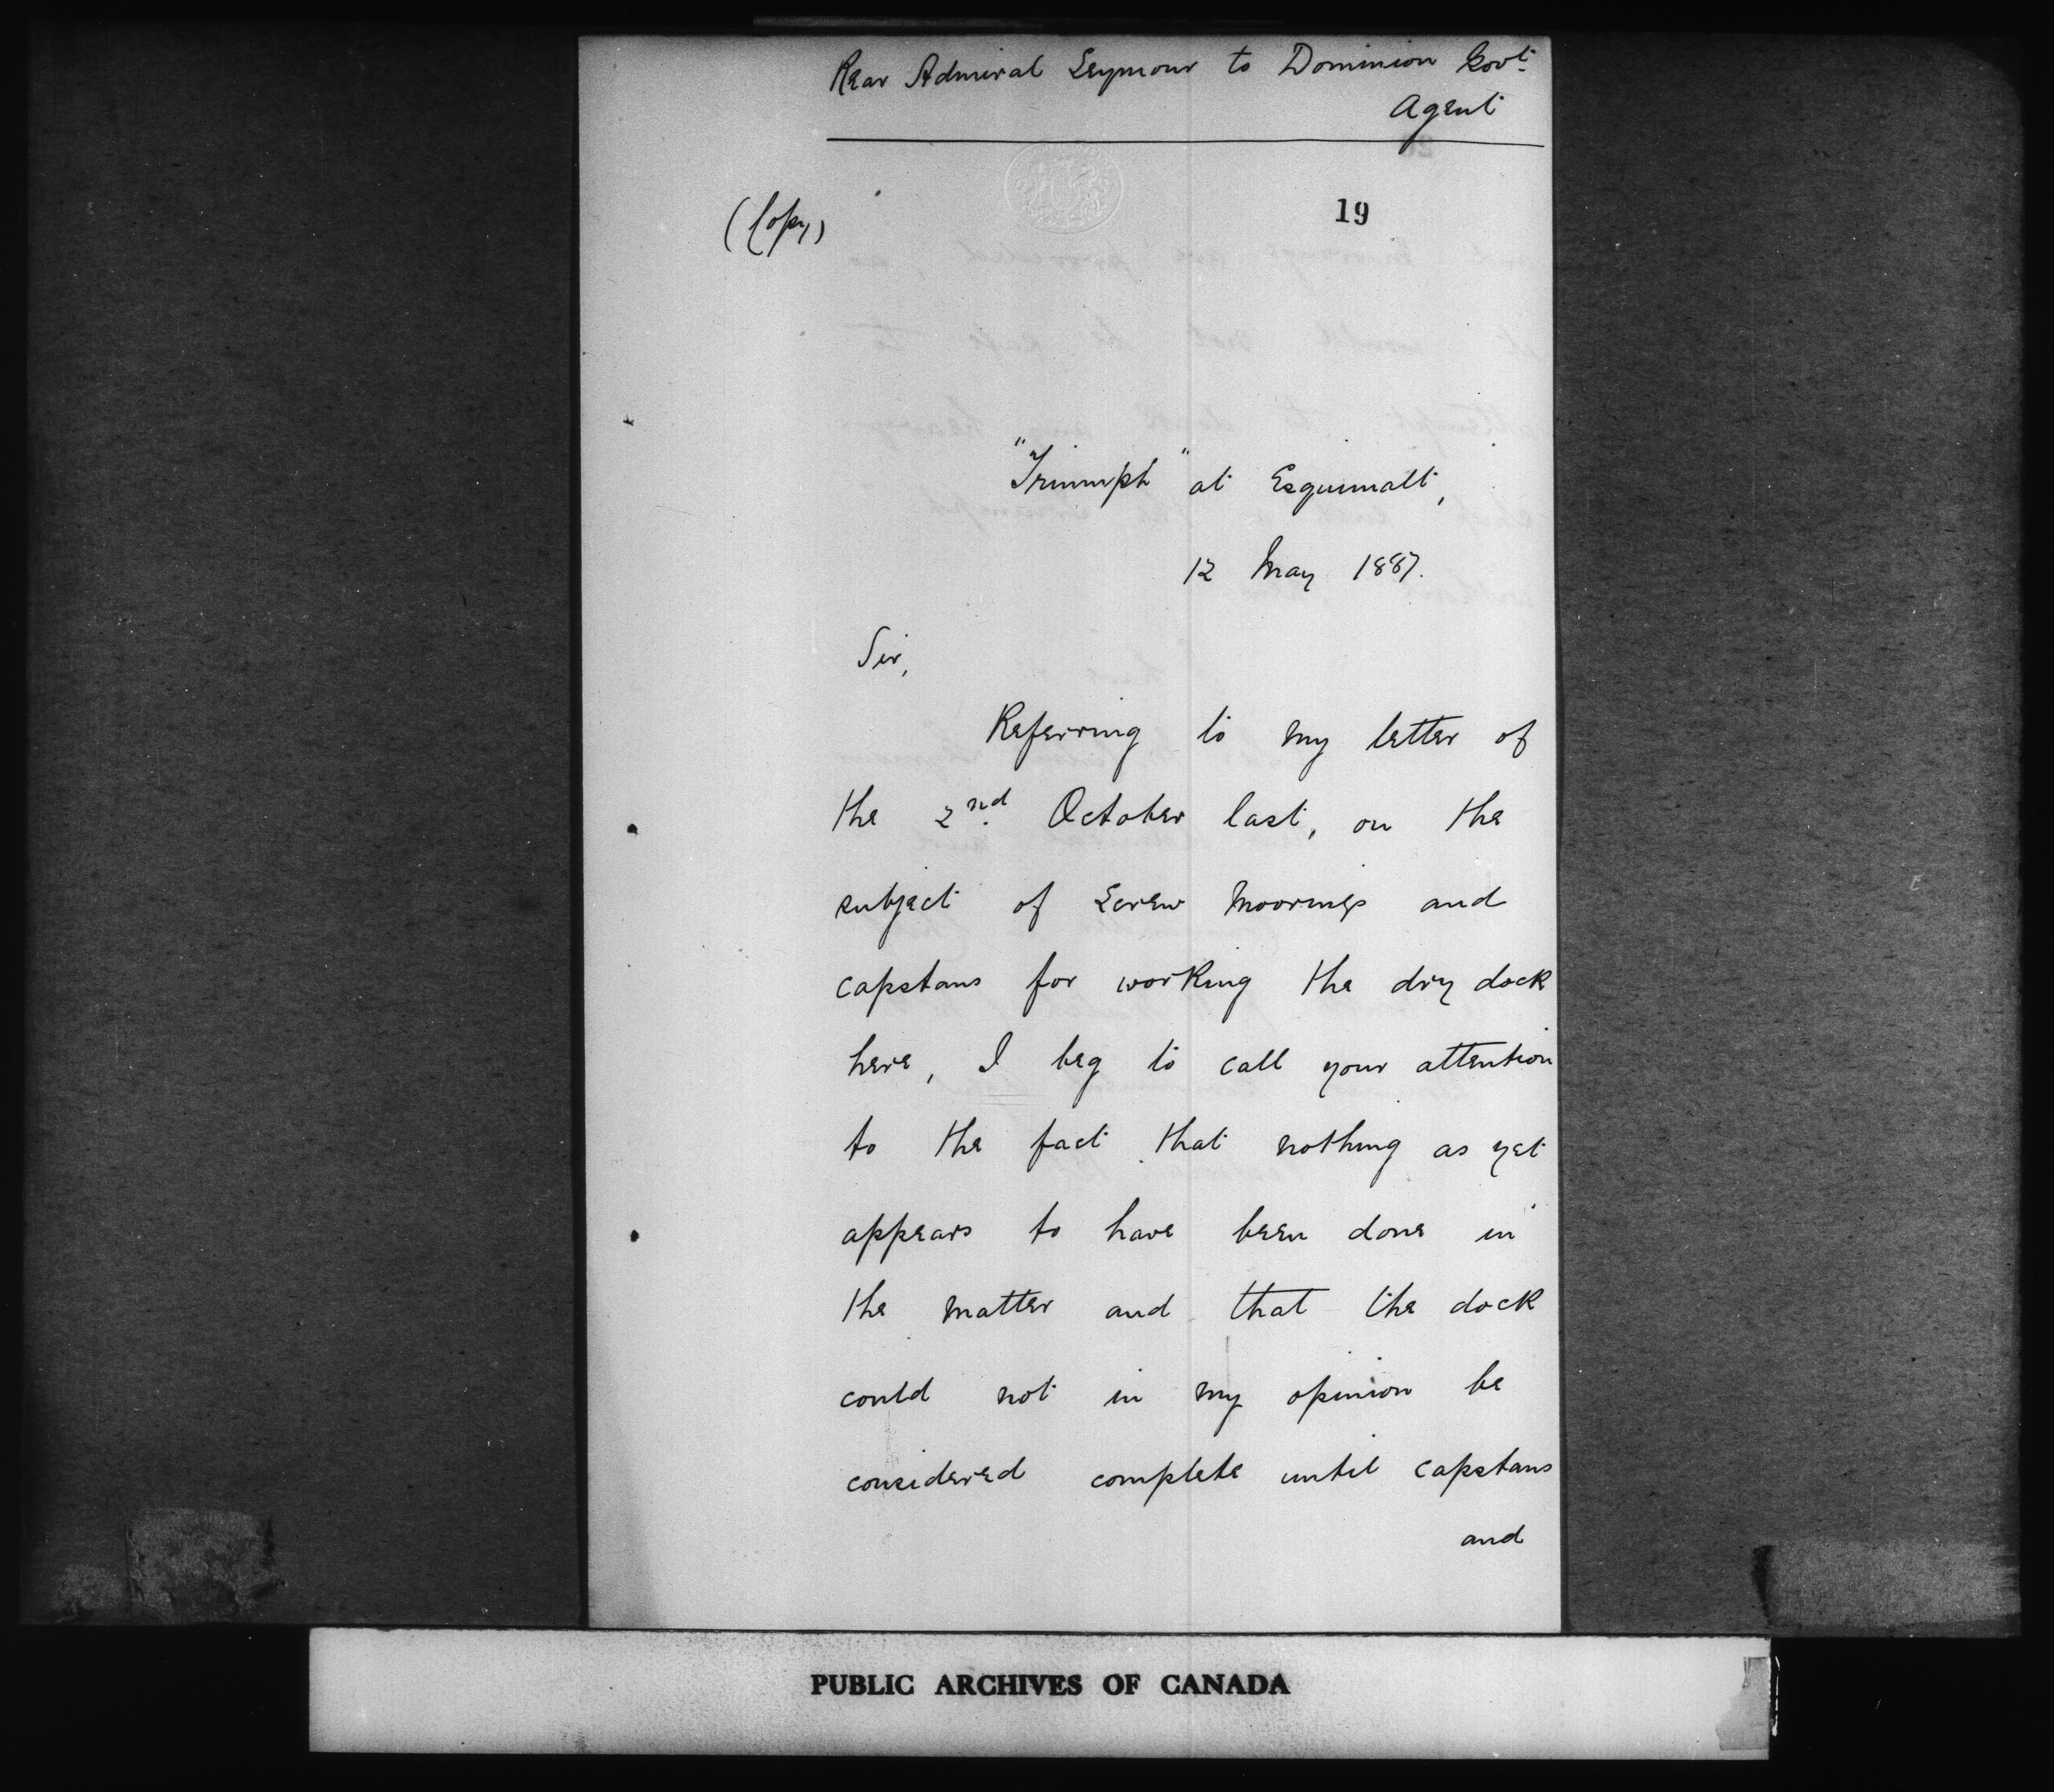 Rear Admiral Seymour to Dominion Govt.
Agent
(Copy)
19
"Triumph" at Esquimalt,
12 May 1887.
Sir,
Referring to my letter of
the 2nd. October last, on the
subject of Screw Moorings and
capstans for working the dry dock
here, I beg to call your attention
to the fact that nothing as yet
appears to have been done in
the matter and that the dock
could not in my opinion be
considered complete until capstans
and
PUBLIC ARCHIVES OF CANADA